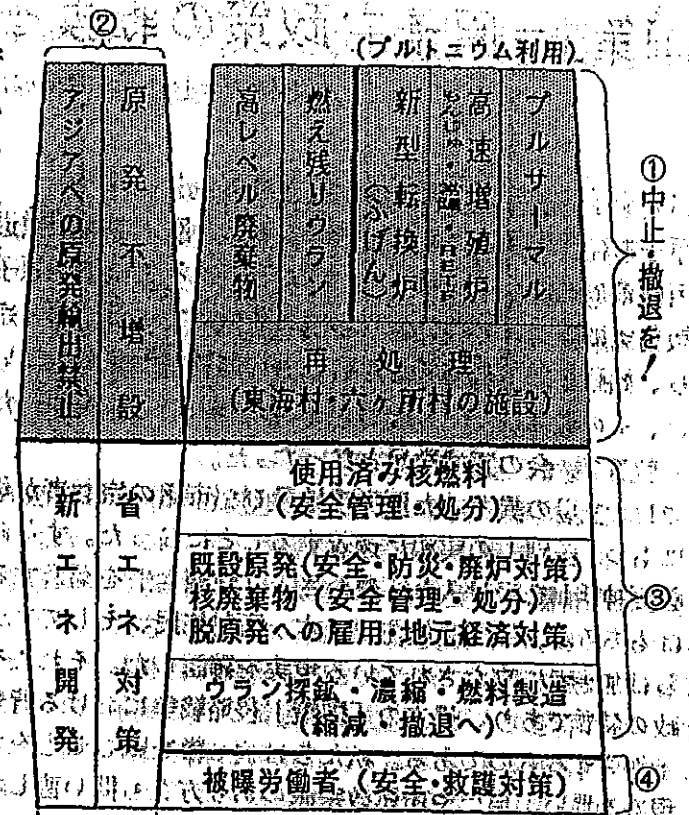 ②
(プルトニウム利用)
アジアへの原発輸出禁止
原発不増設
高レベル廃棄物
燃え残りウラン
新型転換炉
(ふげん)
高速増殖炉
プルサーマル
①中止・撤退を!
再処理
(東海村・六ヶ所村の施設)
新エネ開発
省エネ対策
使用済み核燃料
(安全管理・処分)
既設原発(安全・防災・廃炉対策)
核廃棄物(安全管理・処分)
脱原発への雇用・地元経済対策
③
ウラン探鉱・濃縮・燃料製造
(縮減・撤退へ)
被曝労働者(安全・救護対策)
④